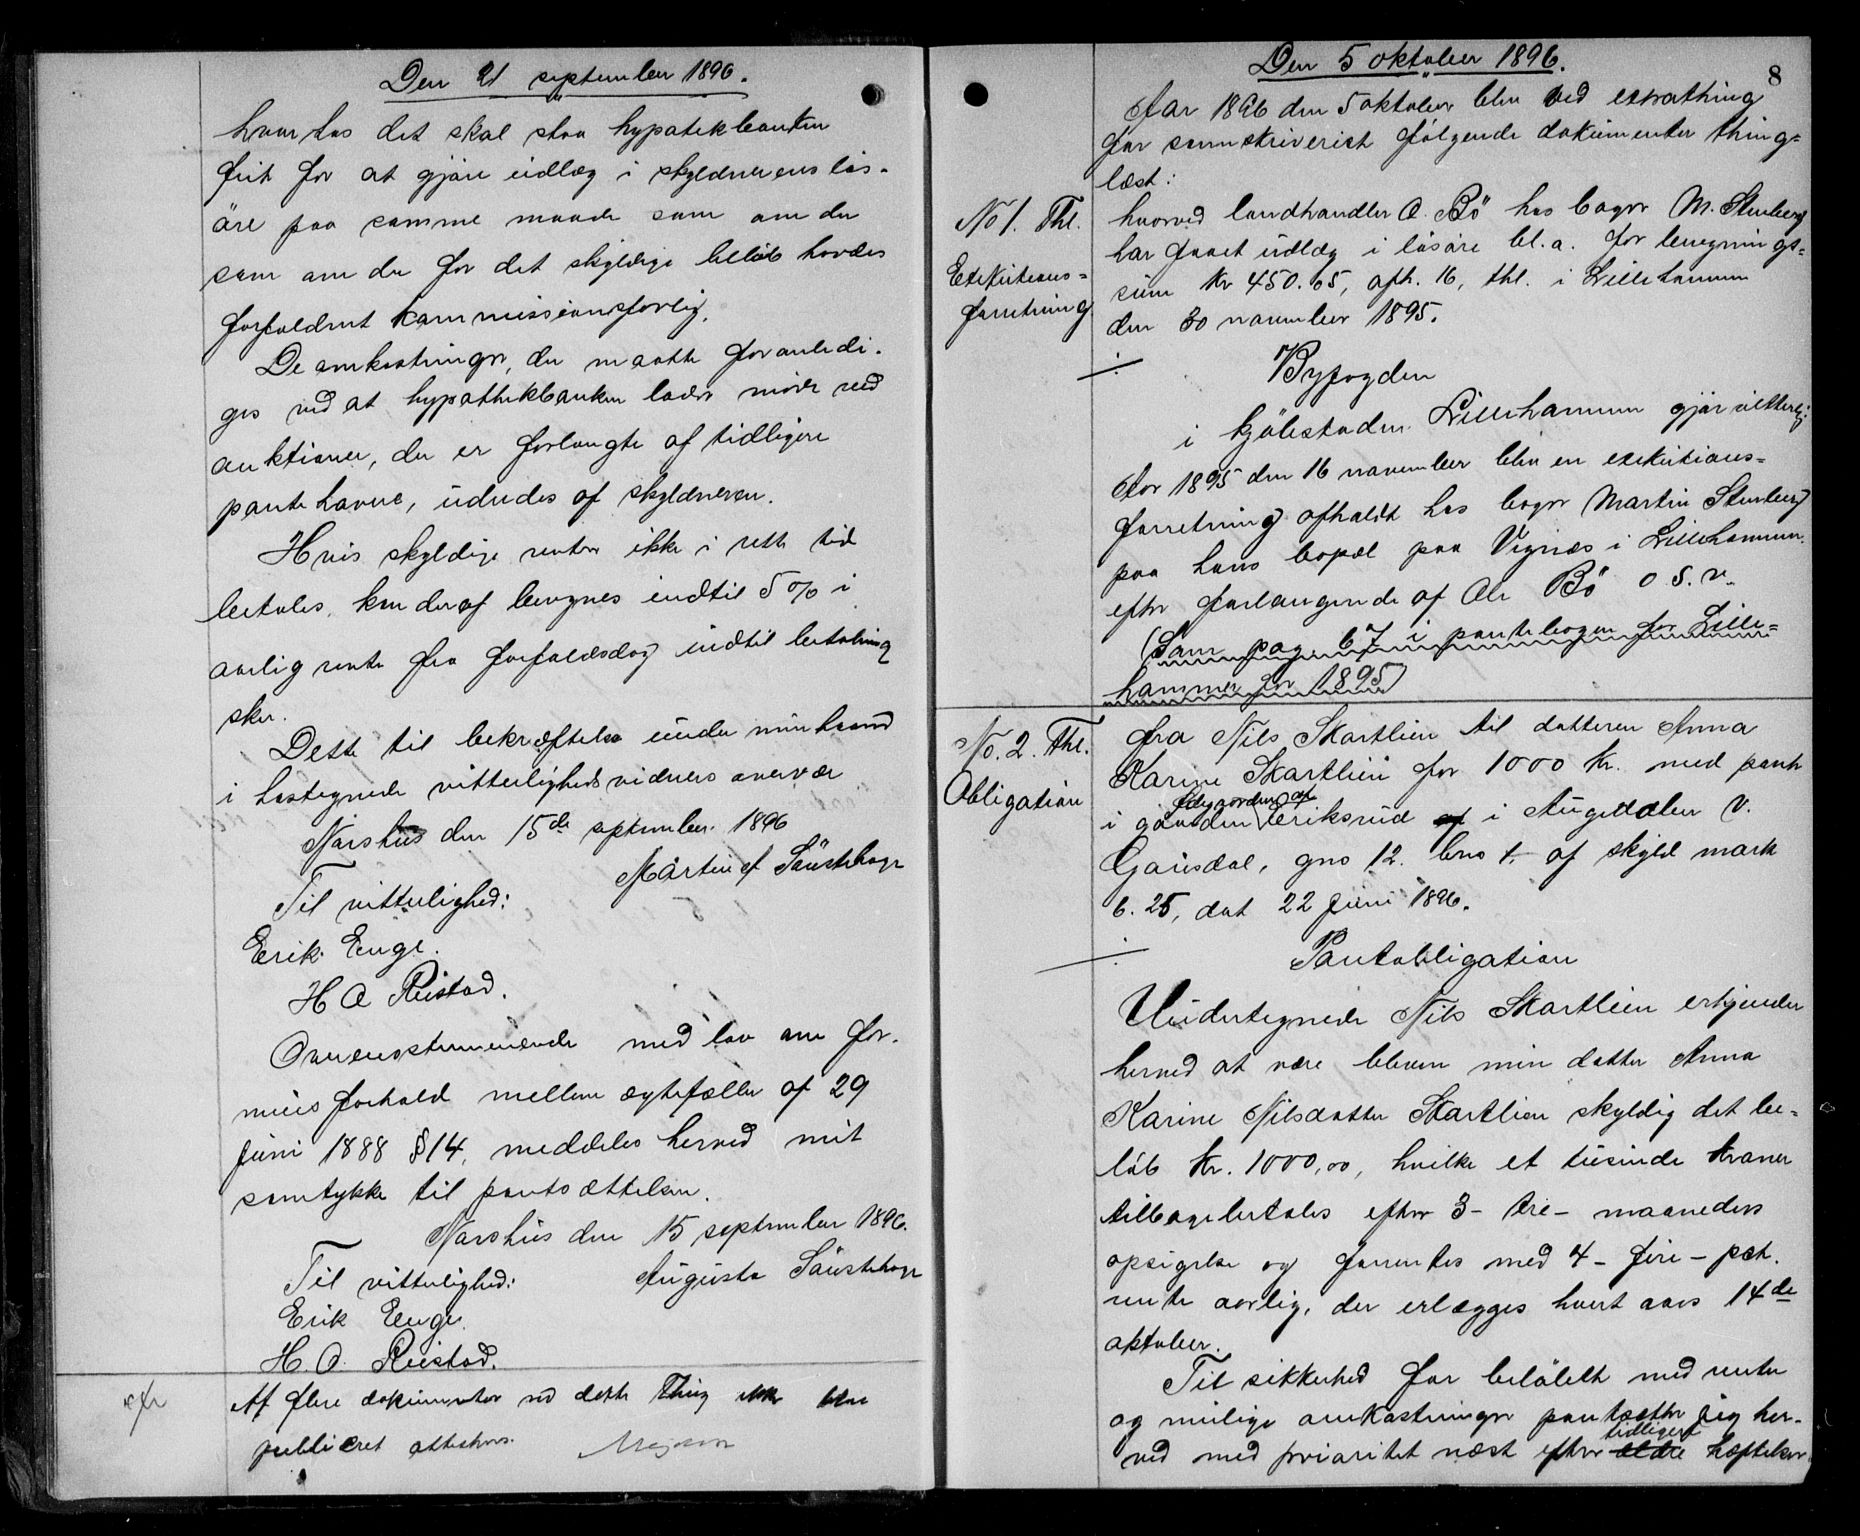 Den 21 september 1896.
hvortos det skal staa hypotekbanken
frit for at gjøre udlæg i skyldnerens løs-
øre paa samme maade som om der
som om der for det skyldige beløb havdes
forfaldent kommissionsforlig.
De omkostninger, der maatte foranledi-
ges ved at hypothekbanken lader møde ved
auktioner, der er forlangte af tidligere
panthavere, udredes af skyldneren.
Hvis skyldige renter ikke i rette tid
betales, kan deraf beregnes indtil 5 % i
aarlig rente fra forfaldsdag indtil betaling
sker.
Dette til bekræftelse under min haand
i hostegnede vitterlighedsvidners overvær
Narshus den 15de september 1896
Martin A Sáustehage
Til vitterlighed:
Erik Enge.
H O Rustad.
Overensstemmende med lov om for-
mues forhold mellem ægtefæller af 29
juni 1888 §14, meddeles herved mit
samtykke til pantsættelsen.
Narshus den 15 september 1896.
Til vitterlighed: Augusta Sáustehage
Erik Enge.
H. O. Rustad.
Af flere dokumenter ved dette Thing blev
publiceret attesteres.
Den 5 oktober 1896.
8
Aar 1896 den 5 oktober blev ved extrathing
for sorenskriveriet følgende dokumenter thing=
læst:
No 1. Thl.
Exekutions=
forretning
hvorved landhandler O. Bö hos bager M. Stenberg
har faaet udlæg i løsøre bl.a. for beregnings=
sum Kr 450.65, afh. 16, thl. i Lillehammer
den 30 november 1895.
÷
Byfogden
i kjöbstaden Lillehammer gjør vitterlig:
Aar 1895 den 16 november blev en exekutions=
forretning afholdt hos bager Martin Stenberg
paa hans bopæl paa Vignæs i Lillehammer
efter forlangende af Ole Bö o s. v.
(Som pag. 67 i pantebogen for Lille=
hammer for 1895)
No. 2. Thl.
Obligation
fra Nils Skartlien til datteren Anna
Karine Skartlien for 1000 Kr. med pant
i gaarden Eriksrud af i Augedalen V.
Gausdal, gno 12. bno 1. af skyld mark
6.25, dat 22 juni 1896.
÷
Pantobligation
Undertegnede Nils Skartlien erkjender
herved at være bleven min datter Anna
Karine Nilsdatter Skartlien skyldig det be=
løb Kr. 1000,00, hvilke et tusinde kroner
tilbagebetales efter 3 - tre - maaneders
opsigelse og forrentes med 4 - fire - pct.
rente aarlig, der erlægges hvert aars 14de
oktober.
Til sikkerhed for beløbet med renter
og mulige omkostninger pantsætter jeg her-
ved med prioritet næst efter tidligere ældre hæftelser